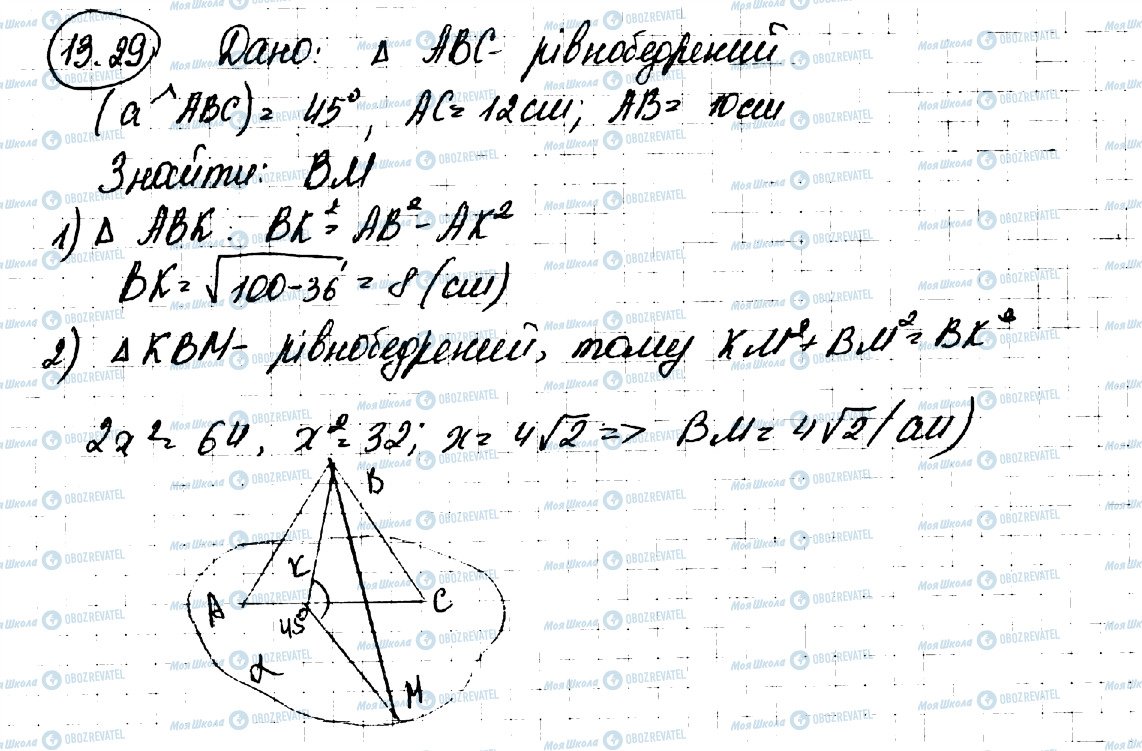 13.29 Дано: Δ ABC - рівнобедрений
(α ^ ABC) = 45°, AC = 12 см; AB = 10 см
Знайти: BM
1) Δ ABK. BK² = AB² - AK²
BK = √100-36 = 8 (см)
2) Δ KBM - рівнобедрений, тому KM² + BM² = BK²
2x² = 64, x² = 32; x = 4√2 => BM = 4√2 (см)
B
K
A
C
45°
α
M
Моя Школа OBOZREVATEL